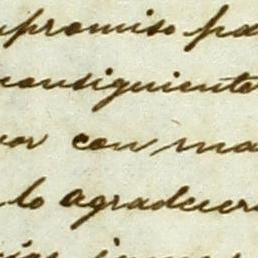 promiso pa
consiguiente
or con ma
lo agradecer